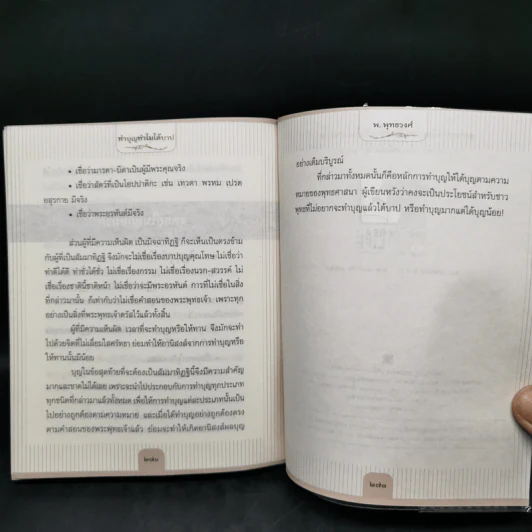 ทำบุญทำไมได้บาป
• เชื่อว่ามารดา-บิดาเป็นผู้มีพระคุณจริง
• เชื่อว่าสัตว์ที่เป็นโอปปาติกะ เช่น เทวดา พรหม เปรต
อสุรกาย มีจริง
• เชื่อว่าพระอรหันต์มีจริง
ส่วนผู้ที่มีความเห็นผิด เป็นมิจฉาทิฏฐิ ก็จะเห็นเป็นตรงข้าม
กับผู้ที่เป็นสัมมาทิฏฐิ จึงมักจะไม่เชื่อเรื่องบาปบุญคุณโทษ ไม่เชื่อว่า
ทำดีได้ดี ทำชั่วได้ชั่ว ไม่เชื่อเรื่องกรรม ไม่เชื่อเรื่องนรก-สวรรค์ ไม่
เชื่อเรื่องชาตินี้ชาติหน้า ไม่เชื่อว่าจะมีพระอรหันต์ การที่ไม่เชื่อในสิ่ง
ที่กล่าวมานั้น ก็เท่ากับว่าไม่เชื่อคำสอนของพระพุทธเจ้า เพราะทุก
อย่างเป็นสิ่งที่พระพุทธเจ้าตรัสไว้แล้วทั้งสิ้น
ผู้ที่มีความเห็นผิด เวลาที่จะทำบุญหรือให้ทาน จึงมักจะทำ
ไปด้วยจิตที่ไม่เลื่อมใสศรัทธา ย่อมทำให้อานิสงส์จากการทำบุญหรือ
ให้ทานนั้นมีน้อย
บุญในข้อสุดท้ายที่จะต้องเป็นสัมมาทิฏฐินี้จึงมีความสำคัญ
มากและขาดไม่ได้เลย เพราะจะนำไปประกอบกับการทำบุญทุกประเภท
ทุกชนิดที่กล่าวมาแล้วทั้งหมด เพื่อให้การทำบุญแต่ละประเภทนั้นเป็น
ไปอย่างถูกต้องตามความหมาย และเมื่อได้ทำบุญอย่างถูกต้องตรง
ตามคำสอนของพระพุทธเจ้าแล้ว ย่อมจะทำให้เกิดอานิสงส์ผลบุญ
พ. พุทธวงศ์
อย่างเต็มบริบูรณ์
ที่กล่าวมาทั้งหมดนั้นก็คือหลักการทำบุญให้ได้บุญตามความ
หมายของพุทธศาสนา ผู้เขียนหวังว่าคงจะเป็นประโยชน์สำหรับชาว
พุทธที่ไม่อยากจะทำบุญแล้วได้บาป หรือทำบุญมากแต่ได้บุญน้อย!